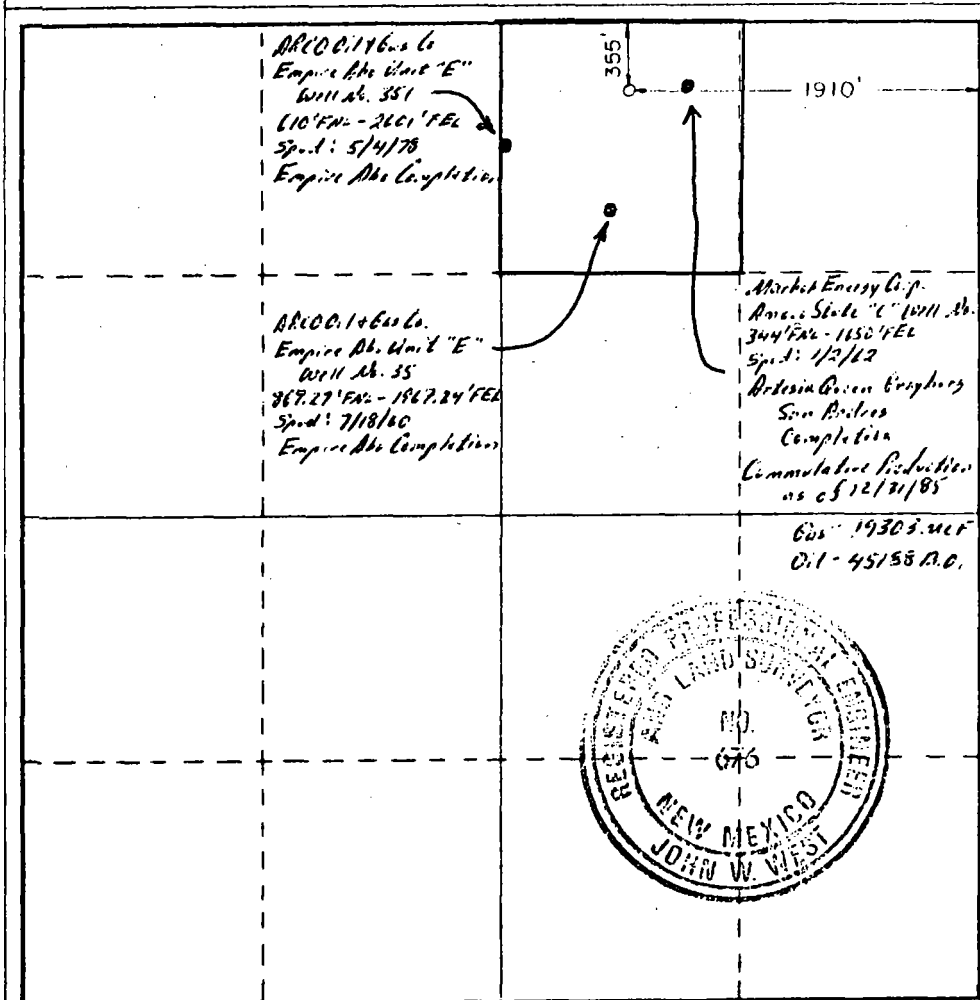 ARCO Oil & Gas Co
Empire Abo Unit "E"
Well No. 351
610' FNL - 2601' FEL
Spud: 5/4/78
Empire Abo Completion
355'
1910'
ARCO Oil & Gas Co.
Empire Abo Unit "E"
Well No. 35
869.27' FNL - 1967.24' FEL
Spud: 7/18/60
Empire Abo Completion
Marbob Energy Corp.
State "C" Well No.
344' FNL - 1650' FEL
Spud: 1/2/62
Artesia Queen Grayburg
San Andres
Completion
Commulative Production
as of 12/31/85
Gas - 19303 MCF
Oil - 45158 B.O.
REGISTERED PROFESSIONAL ENGINEER
AND LAND SURVEYOR
NO.
676
NEW MEXICO
JOHN W. WEST